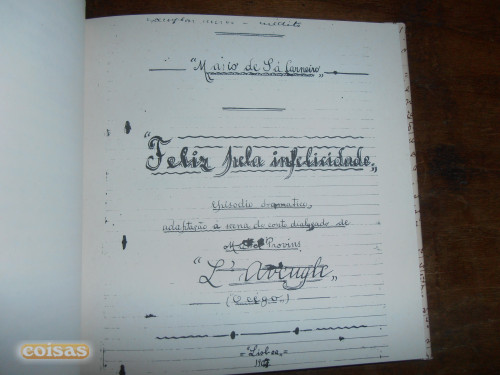 "Mario de Sá Carneiro„
"Feliz pela infelicidade„
episodio dramatico,
adaptação á scena do conto dialogado de
Provins
"L'Aveugle„
(Cego...)
= Lisboa, =
coisas